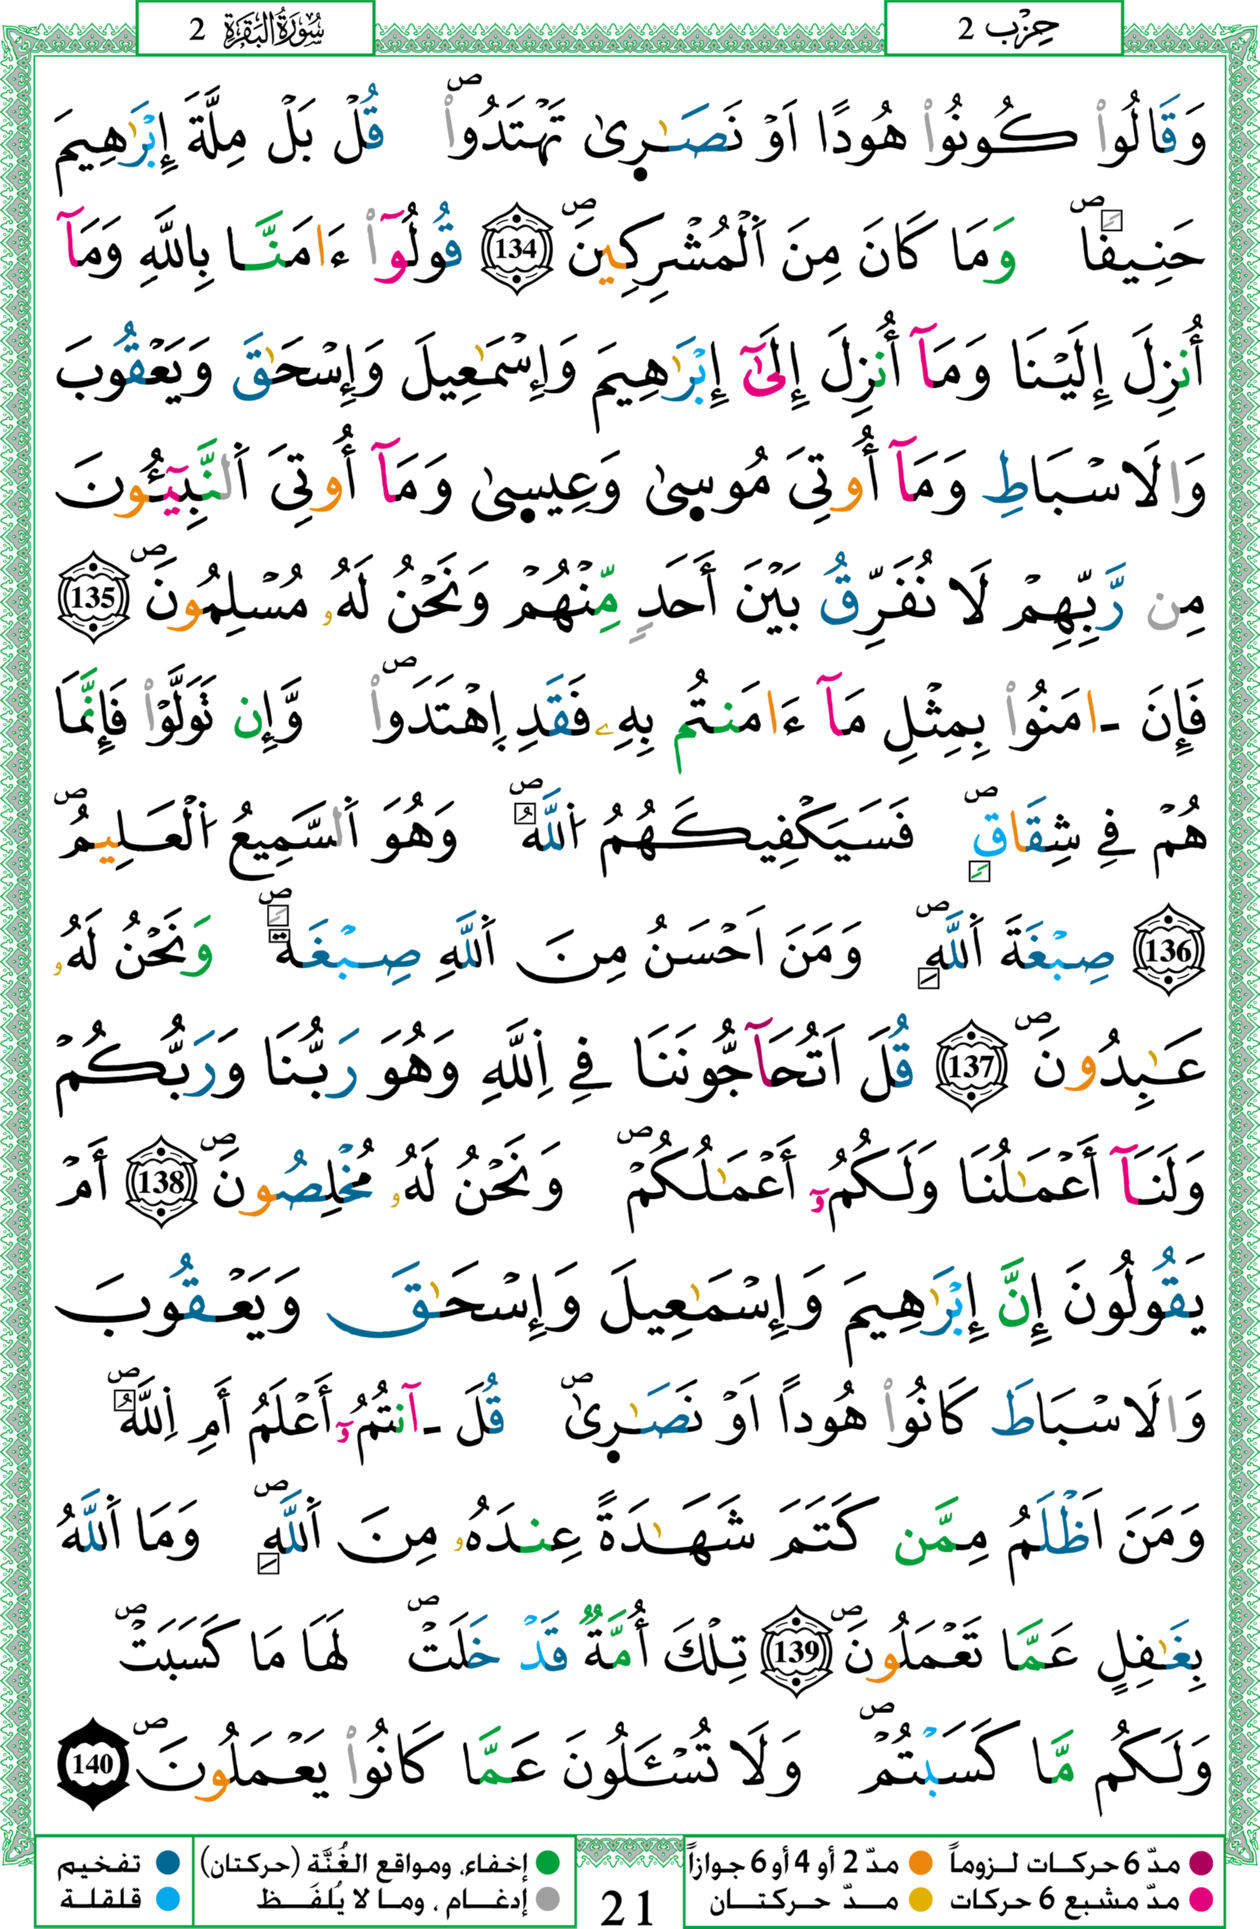 سُورَةُ البَقَرَةِ 2
حِزْب 2
وَقَالُواْ كُونُواْ هُودًا اَوْ نَصَٰرِىٰ تَهْتَدُواْۖ قُلْ بَلْ مِلَّةَ إِبْرَٰهِيمَ
حَنِيفاٗۖ وَمَا كَانَ مِنَ اَ۬لْمُشْرِكِينَۖ 134 قُولُوٓاْ ءَامَنَّا بِاللَّهِ وَمَآ
أُنزِلَ إِلَيْنَا وَمَآ أُنزِلَ إِلَىٰٓ إِبْرَٰهِيمَ وَإِسْمَٰعِيلَ وَإِسْحَٰقَ وَيَعْقُوبَ
وَالَاسْبَاطِ وَمَآ أُوتِيَ مُوسِىٰ وَعِيسِىٰ وَمَآ أُوتِيَ اَ۬لنَّبِيٓـُٔونَ
مِن رَّبِّهِمْ لَا نُفَرِّقُ بَيْنَ أَحَدٍ مِّنْهُمْ وَنَحْنُ لَهُۥ مُسْلِمُونَۖ 135
فَإِنَ ـامَنُواْ بِمِثْلِ مَآ ءَامَنتُم بِهِۦ فَقَدِ اِ۪هْتَدَواْۖ وَّإِن تَوَلَّوْاْ فَإِنَّمَا
هُمْ فِے شِقَاقٖۖ فَسَيَكْفِيكَهُمُ اُ۬للَّهُۖ وَهُوَ اَ۬لسَّمِيعُ اُ۬لْعَلِيمُۖ
136 صِبْغَةَ اَ۬للَّهِۖ وَمَنَ اَحْسَنُ مِنَ اَ۬للَّهِ صِبْغَةٗۖ وَنَحْنُ لَهُۥ
عَٰبِدُونَۖ 137 قُلَ اَتُحَآجُّونَنَا فِے اِ۬للَّهِ وَهُوَ رَبُّنَا وَرَبُّكُمْ
وَلَنَآ أَعْمَٰلُنَا وَلَكُمُۥٓ أَعْمَٰلُكُمْۖ وَنَحْنُ لَهُۥ مُخْلِصُونَۖ 138 أَمْ
يَقُولُونَ إِنَّ إِبْرَٰهِيمَ وَإِسْمَٰعِيلَ وَإِسْحَٰقَ وَيَعْقُوبَ
وَالَاسْبَاطَ كَانُواْ هُوداً اَوْ نَصَٰرِىٰۖ قُلَ ـآنتُمُۥٓ أَعْلَمُ أَمِ اِ۬للَّهُۖ
وَمَنَ اَظْلَمُ مِمَّن كَتَمَ شَهَٰدَةً عِندَهُۥ مِنَ اَ۬للَّهِۖ وَمَا اَ۬للَّهُ
بِغَٰفِلٍ عَمَّا تَعْمَلُونَۖ 139 تِلْكَ أُمَّةٞ قَدْ خَلَتْۖ لَهَا مَا كَسَبَتْۖ
وَلَكُم مَّا كَسَبْتُمْۖ وَلَا تُسْـَٔلُونَ عَمَّا كَانُواْ يَعْمَلُونَۖ 140
مدّ 6 حركات لـزوماً مدّ 2 أو 4 أو 6 جوازاً
مدّ مشبع 6 حركات مـدّ حـركتـــان
21
إخفاء، ومواقع الغُنَّة (حركتان) تفخيم
إدغـام ، ومـا لا يُلفَـظ قلقلة